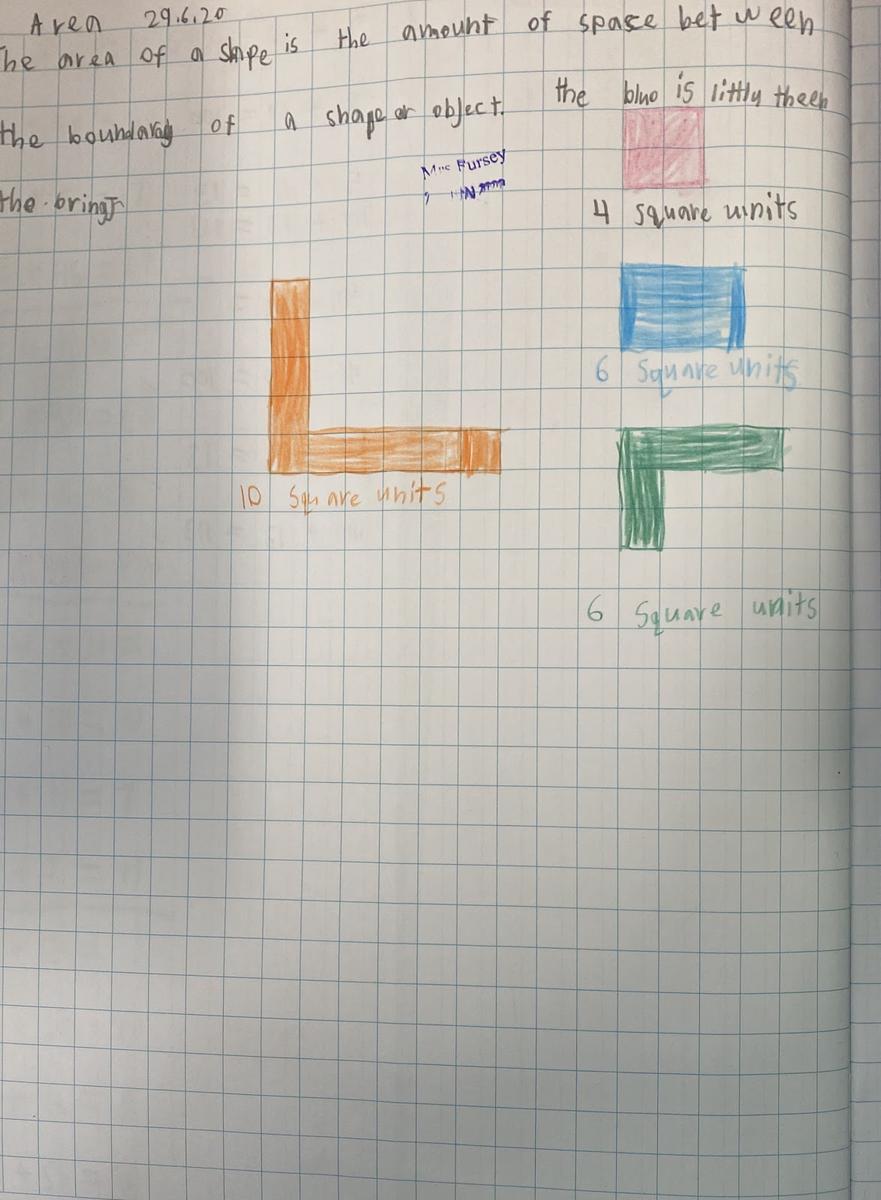 Area 29.6.20
The area of a shape is the amount of space between
the boundaray of a shape or object. the bluo is littly theen
the bring
Mrs Fursey
4 square units
6 Square units
10 Square units
6 Square units